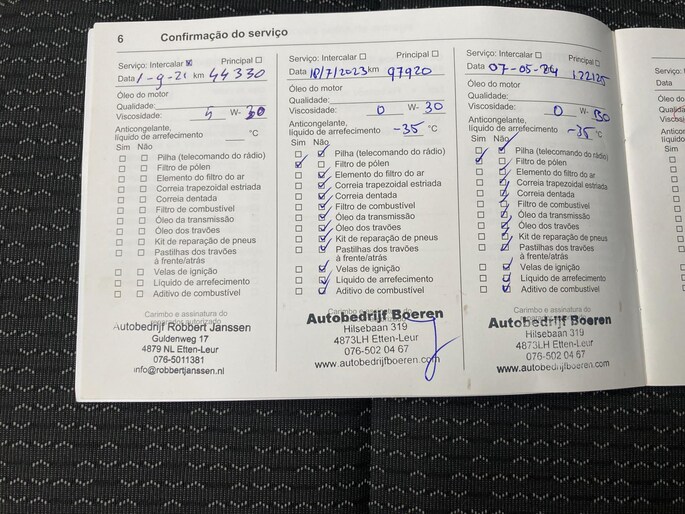 6 Confirmação do serviço
Serviço: Intercalar Principal
Data 1-9-21 km 44330
Óleo do motor
Qualidade:
Viscosidade: 5 W- 30
Anticongelante,
líquido de arrefecimento °C
Sim Não
Pilha (telecomando do rádio)
Filtro de pólen
Elemento do filtro do ar
Correia trapezoidal estriada
Correia dentada
Filtro de combustível
Óleo da transmissão
Óleo dos travões
Kit de reparação de pneus
Pastilhas dos travões
à frente/atrás
Velas de ignição
Líquido de arrefecimento
Aditivo de combustível
Carimbo e assinatura do
Autobedrijf Robbert Janssen
Guldenweg 17
4879 NL Etten-Leur
076-5011381
info@robbertjanssen.nl
Serviço: Intercalar Principal
Data 18/7/2023 km 97920
Óleo do motor
Qualidade:
Viscosidade: 0 W- 30
Anticongelante,
líquido de arrefecimento -35 °C
Sim Não
Pilha (telecomando do rádio)
Filtro de pólen
Elemento do filtro do ar
Correia trapezoidal estriada
Correia dentada
Filtro de combustível
Óleo da transmissão
Óleo dos travões
Kit de reparação de pneus
Pastilhas dos travões
à frente/atrás
Velas de ignição
Líquido de arrefecimento
Aditivo de combustível
Carimbo e assinatura do
Autobedrijf Boeren
Hilsebaan 319
4873LH Etten-Leur
076-502 04 67
www.autobedrijfboeren.com
Serviço: Intercalar Principal
Data 07-05-24 122125
Óleo do motor
Qualidade:
Viscosidade: 0 W- 30
Anticongelante,
líquido de arrefecimento -35 °C
Sim Não
Pilha (telecomando do rádio)
Filtro de pólen
Elemento do filtro do ar
Correia trapezoidal estriada
Correia dentada
Filtro de combustível
Óleo da transmissão
Óleo dos travões
Kit de reparação de pneus
Pastilhas dos travões
à frente/atrás
Velas de ignição
Líquido de arrefecimento
Aditivo de combustível
Carimbo e assinatura do
Autobedrijf Boeren
Hilsebaan 319
4873LH Etten-Leur
076-502 04 67
www.autobedrijfboeren.com
Data
Óleo do
Sim